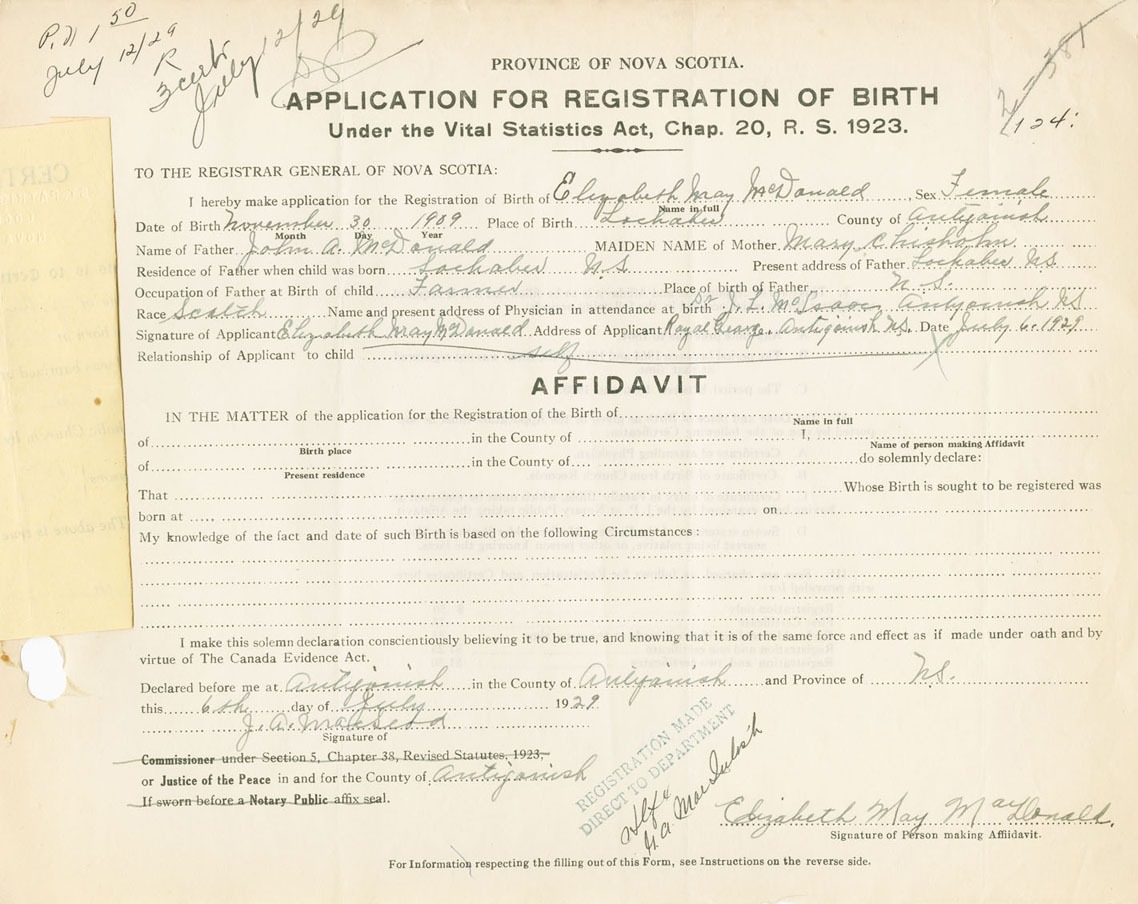 P.D 1 50
July 12/29
R
3 cert.
July 12/29
381
124.
PROVINCE OF NOVA SCOTIA.
APPLICATION FOR REGISTRATION OF BIRTH
Under the Vital Statistics Act, Chap. 20, R. S. 1923.
TO THE REGISTRAR GENERAL OF NOVA SCOTIA:
I hereby make application for the Registration of Birth of Elizabeth May McDonald, Sex Female
Name in full
Date of Birth November 30 1909 Place of Birth Lochaber County of Antigonish
Month Day Year
Name of Father John A. McDonald MAIDEN NAME of Mother Mary Chisholm
Residence of Father when child was born Lochaber N.S Present address of Father Lochaber N.S
Occupation of Father at Birth of child Farmer Place of birth of Father N.S.
Race Scotch Name and present address of Physician in attendance at birth Dr. J. L. McIsaac Antigonish N.S
Signature of Applicant Elizabeth May McDonald Address of Applicant Royal George, Antigonish N.S. Date July 6, 1929
Relationship of Applicant to child self
AFFIDAVIT
IN THE MATTER of the application for the Registration of the Birth of
Name in full
of in the County of I,
Birth place Name of person making Affidavit
of in the County of do solemnly declare:
Present residence
That Whose Birth is sought to be registered was
born at on
My knowledge of the fact and date of such Birth is based on the following Circumstances:
I make this solemn declaration conscientiously believing it to be true, and knowing that it is of the same force and effect as if made under oath and by
virtue of The Canada Evidence Act.
Declared before me at Antigonish in the County of Antigonish and Province of N.S.
this 6th day of July 1929
J. A. MacLeod
Signature of
Commissioner under Section 5, Chapter 38, Revised Statutes, 1923,
or Justice of the Peace in and for the County of Antigonish
If sworn before a Notary Public affix seal.
REGISTRATION MADE
DIRECT TO DEPARTMENT
MacIntosh
Elizabeth May MacDonald.
Signature of Person making Affiidavit.
For Information respecting the filling out of this Form, see Instructions on the reverse side.